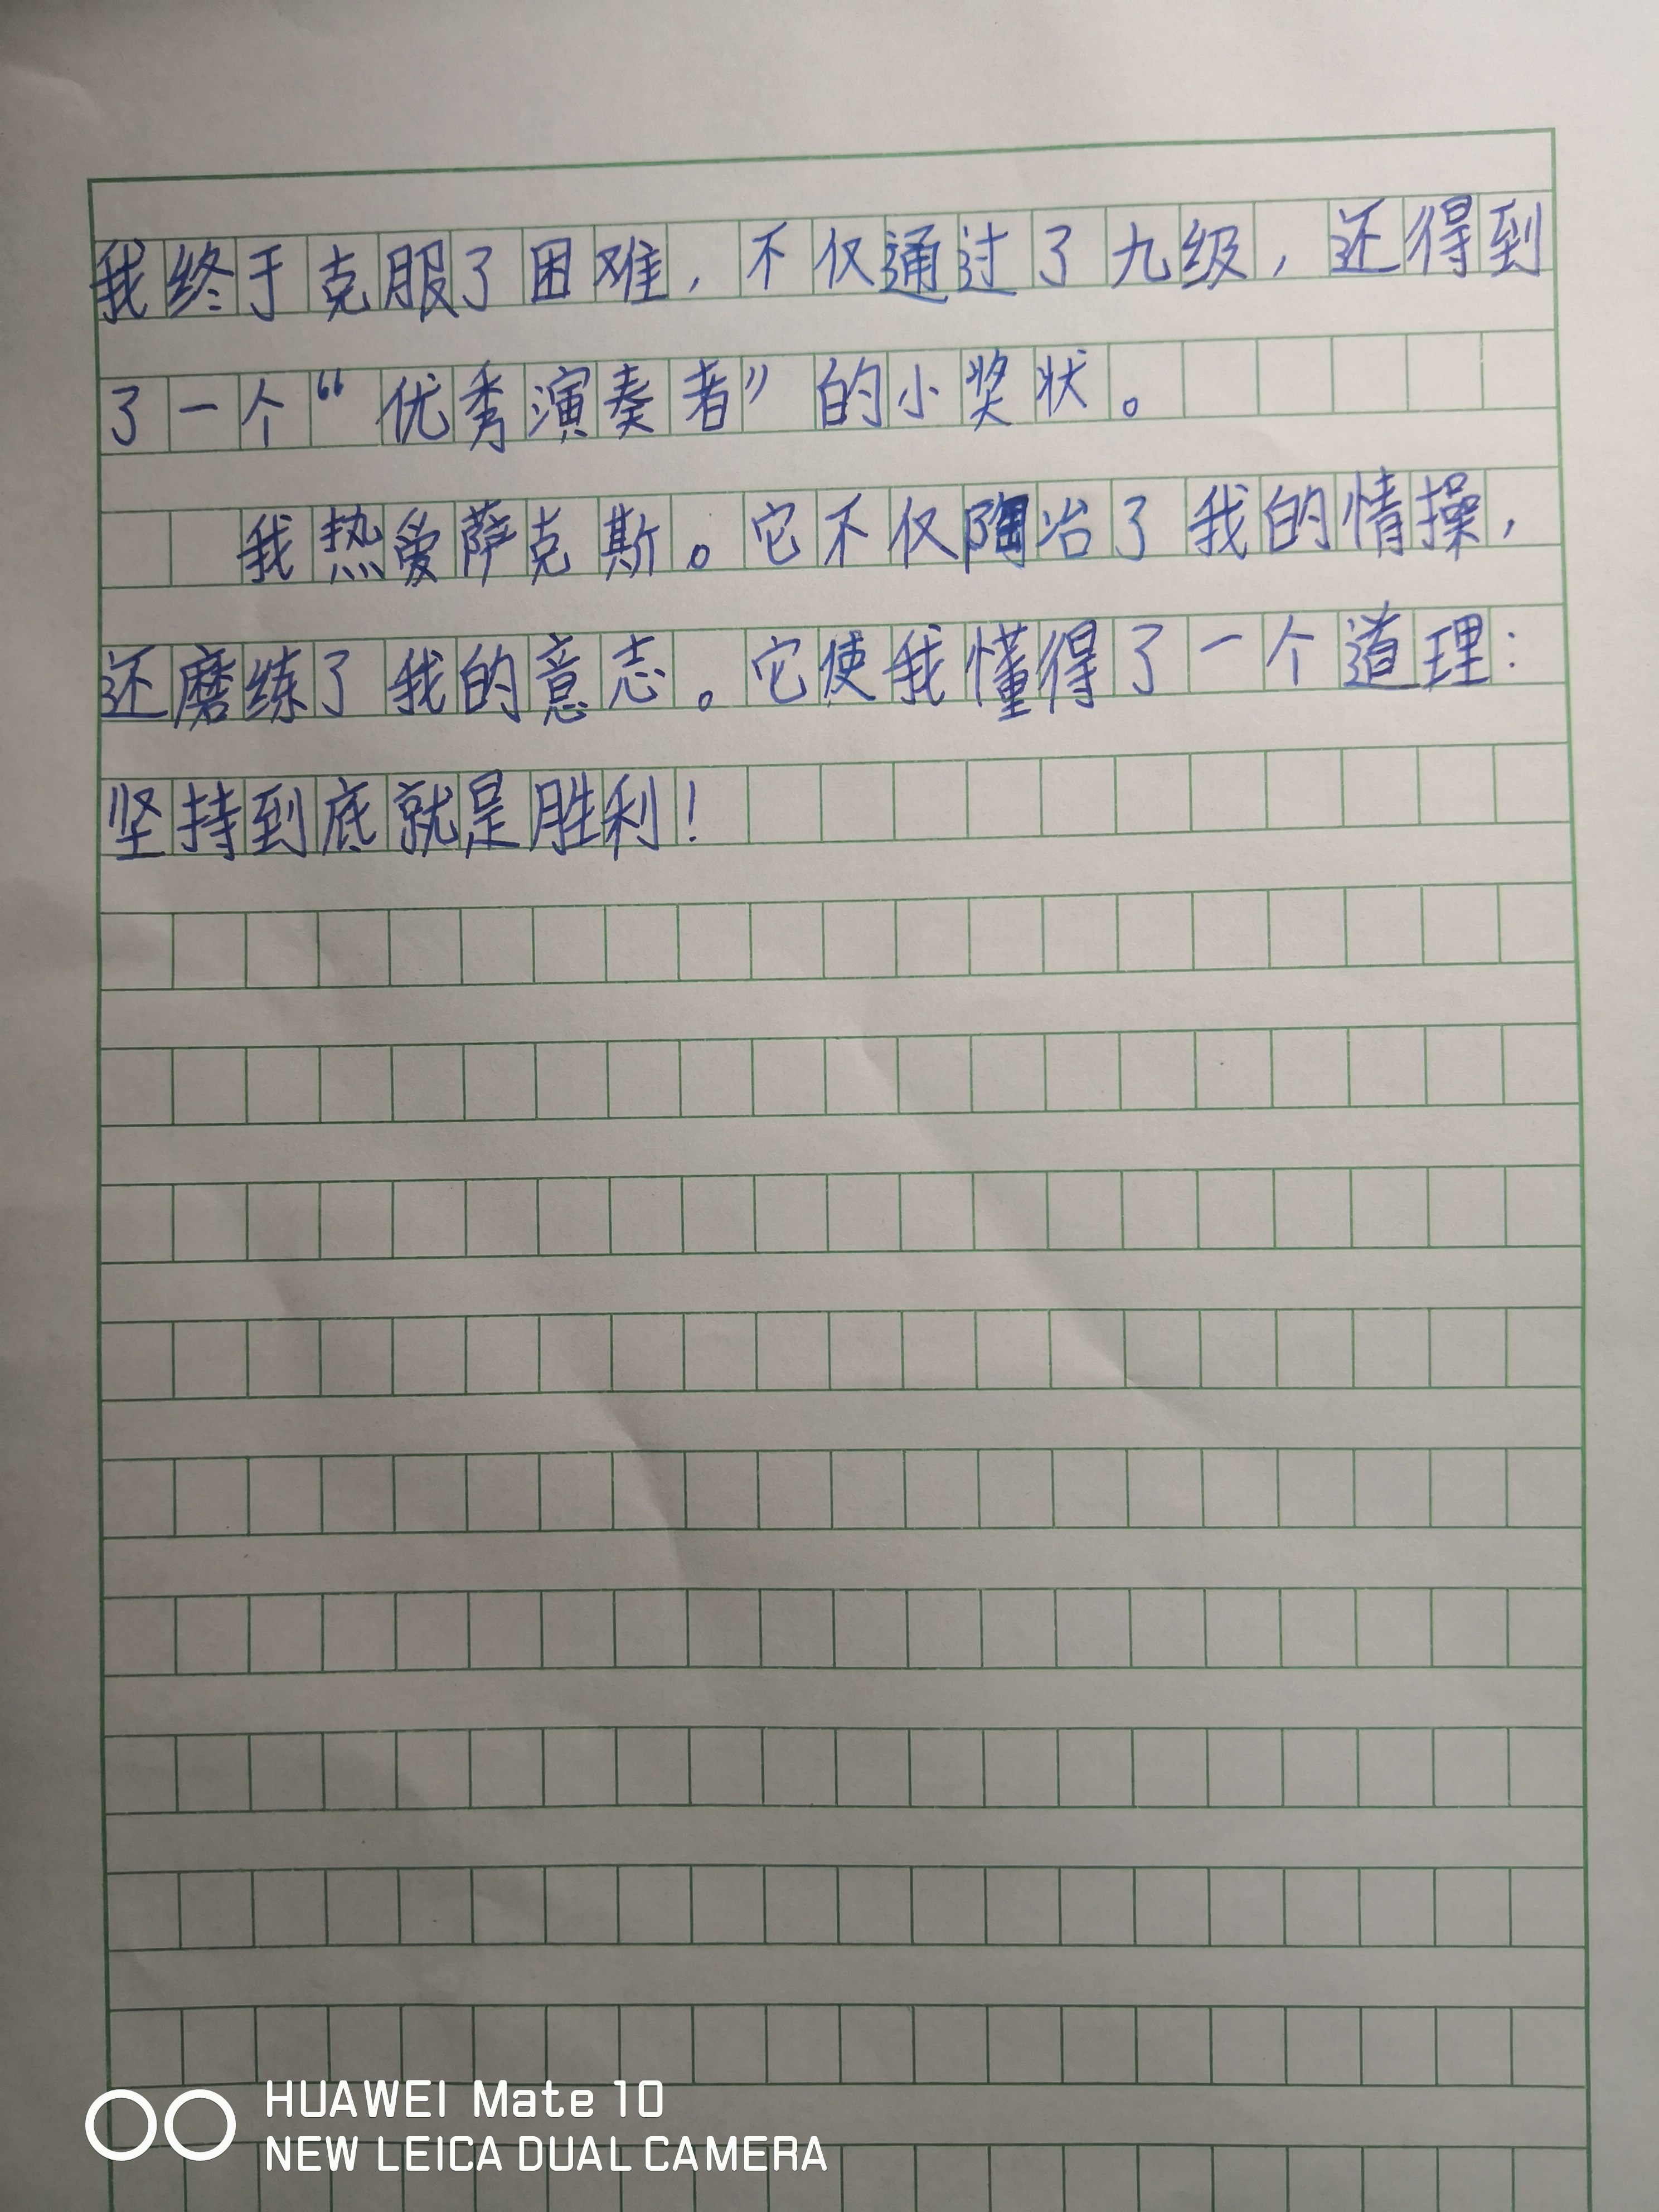 我终于克服了困难，不仅通过了九级，还得到
了一个“优秀演奏者”的小奖状。
我热爱萨克斯。它不仅陶冶了我的情操，
还磨练了我的意志。它使我懂得了一个道理：
坚持到底就是胜利！
HUAWEI Mate 10
NEW LEICA DUAL CAMERA